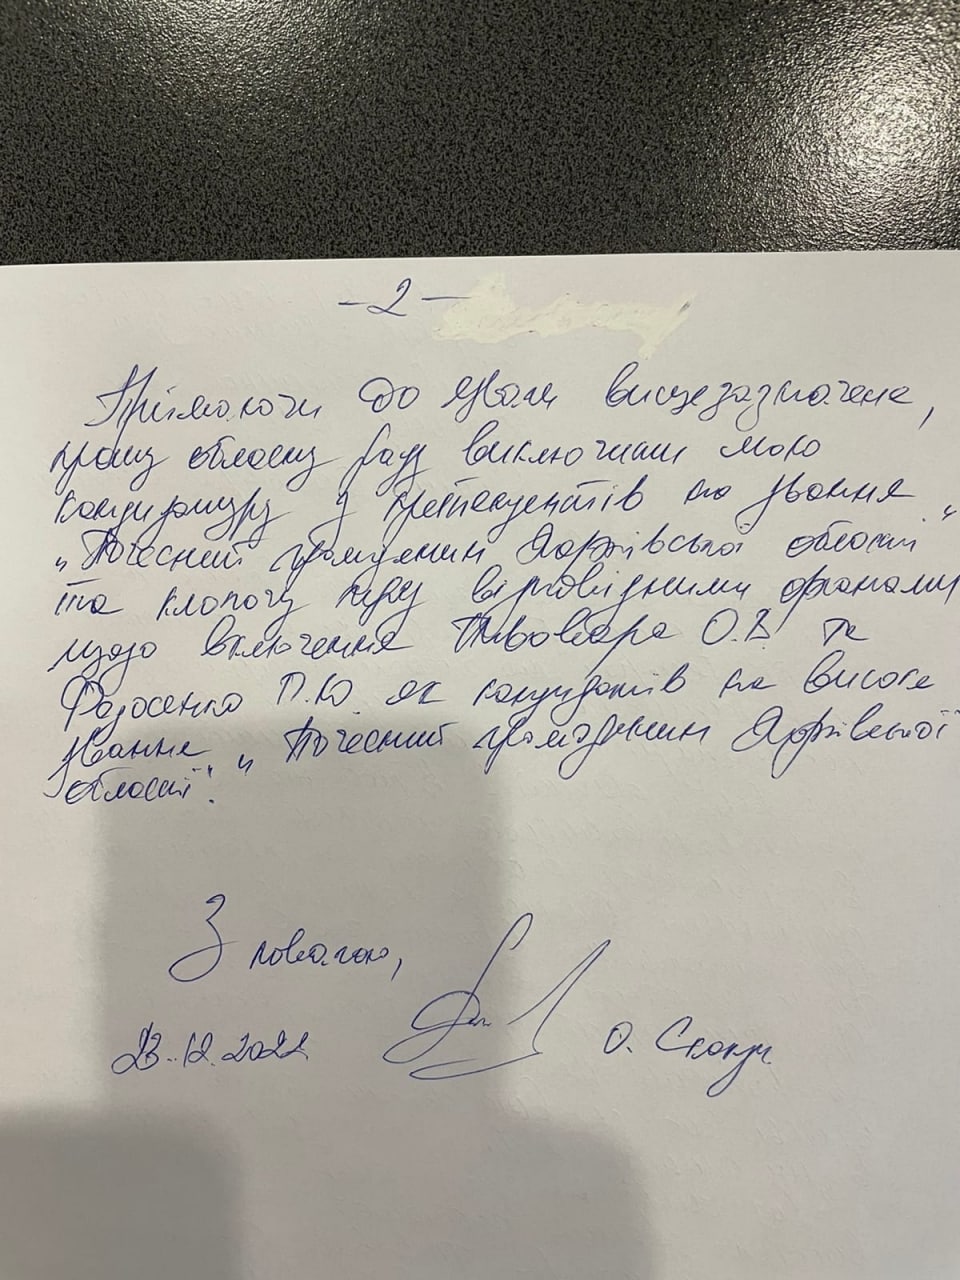 - 2 -
Приймаючи до уваги вищезазначене,
прошу обласну раду виключити мою
кандидатуру у претендентів на звання
„Почесний громадянин Харківської області"
та клопочу перед відповідними органами
щодо включення Пивовара О.В. та
П.Ю. як кандидатів на високе
звання „Почесний громадянин Харківської
області".
З повагою,
23.12.2022 О. Скакун